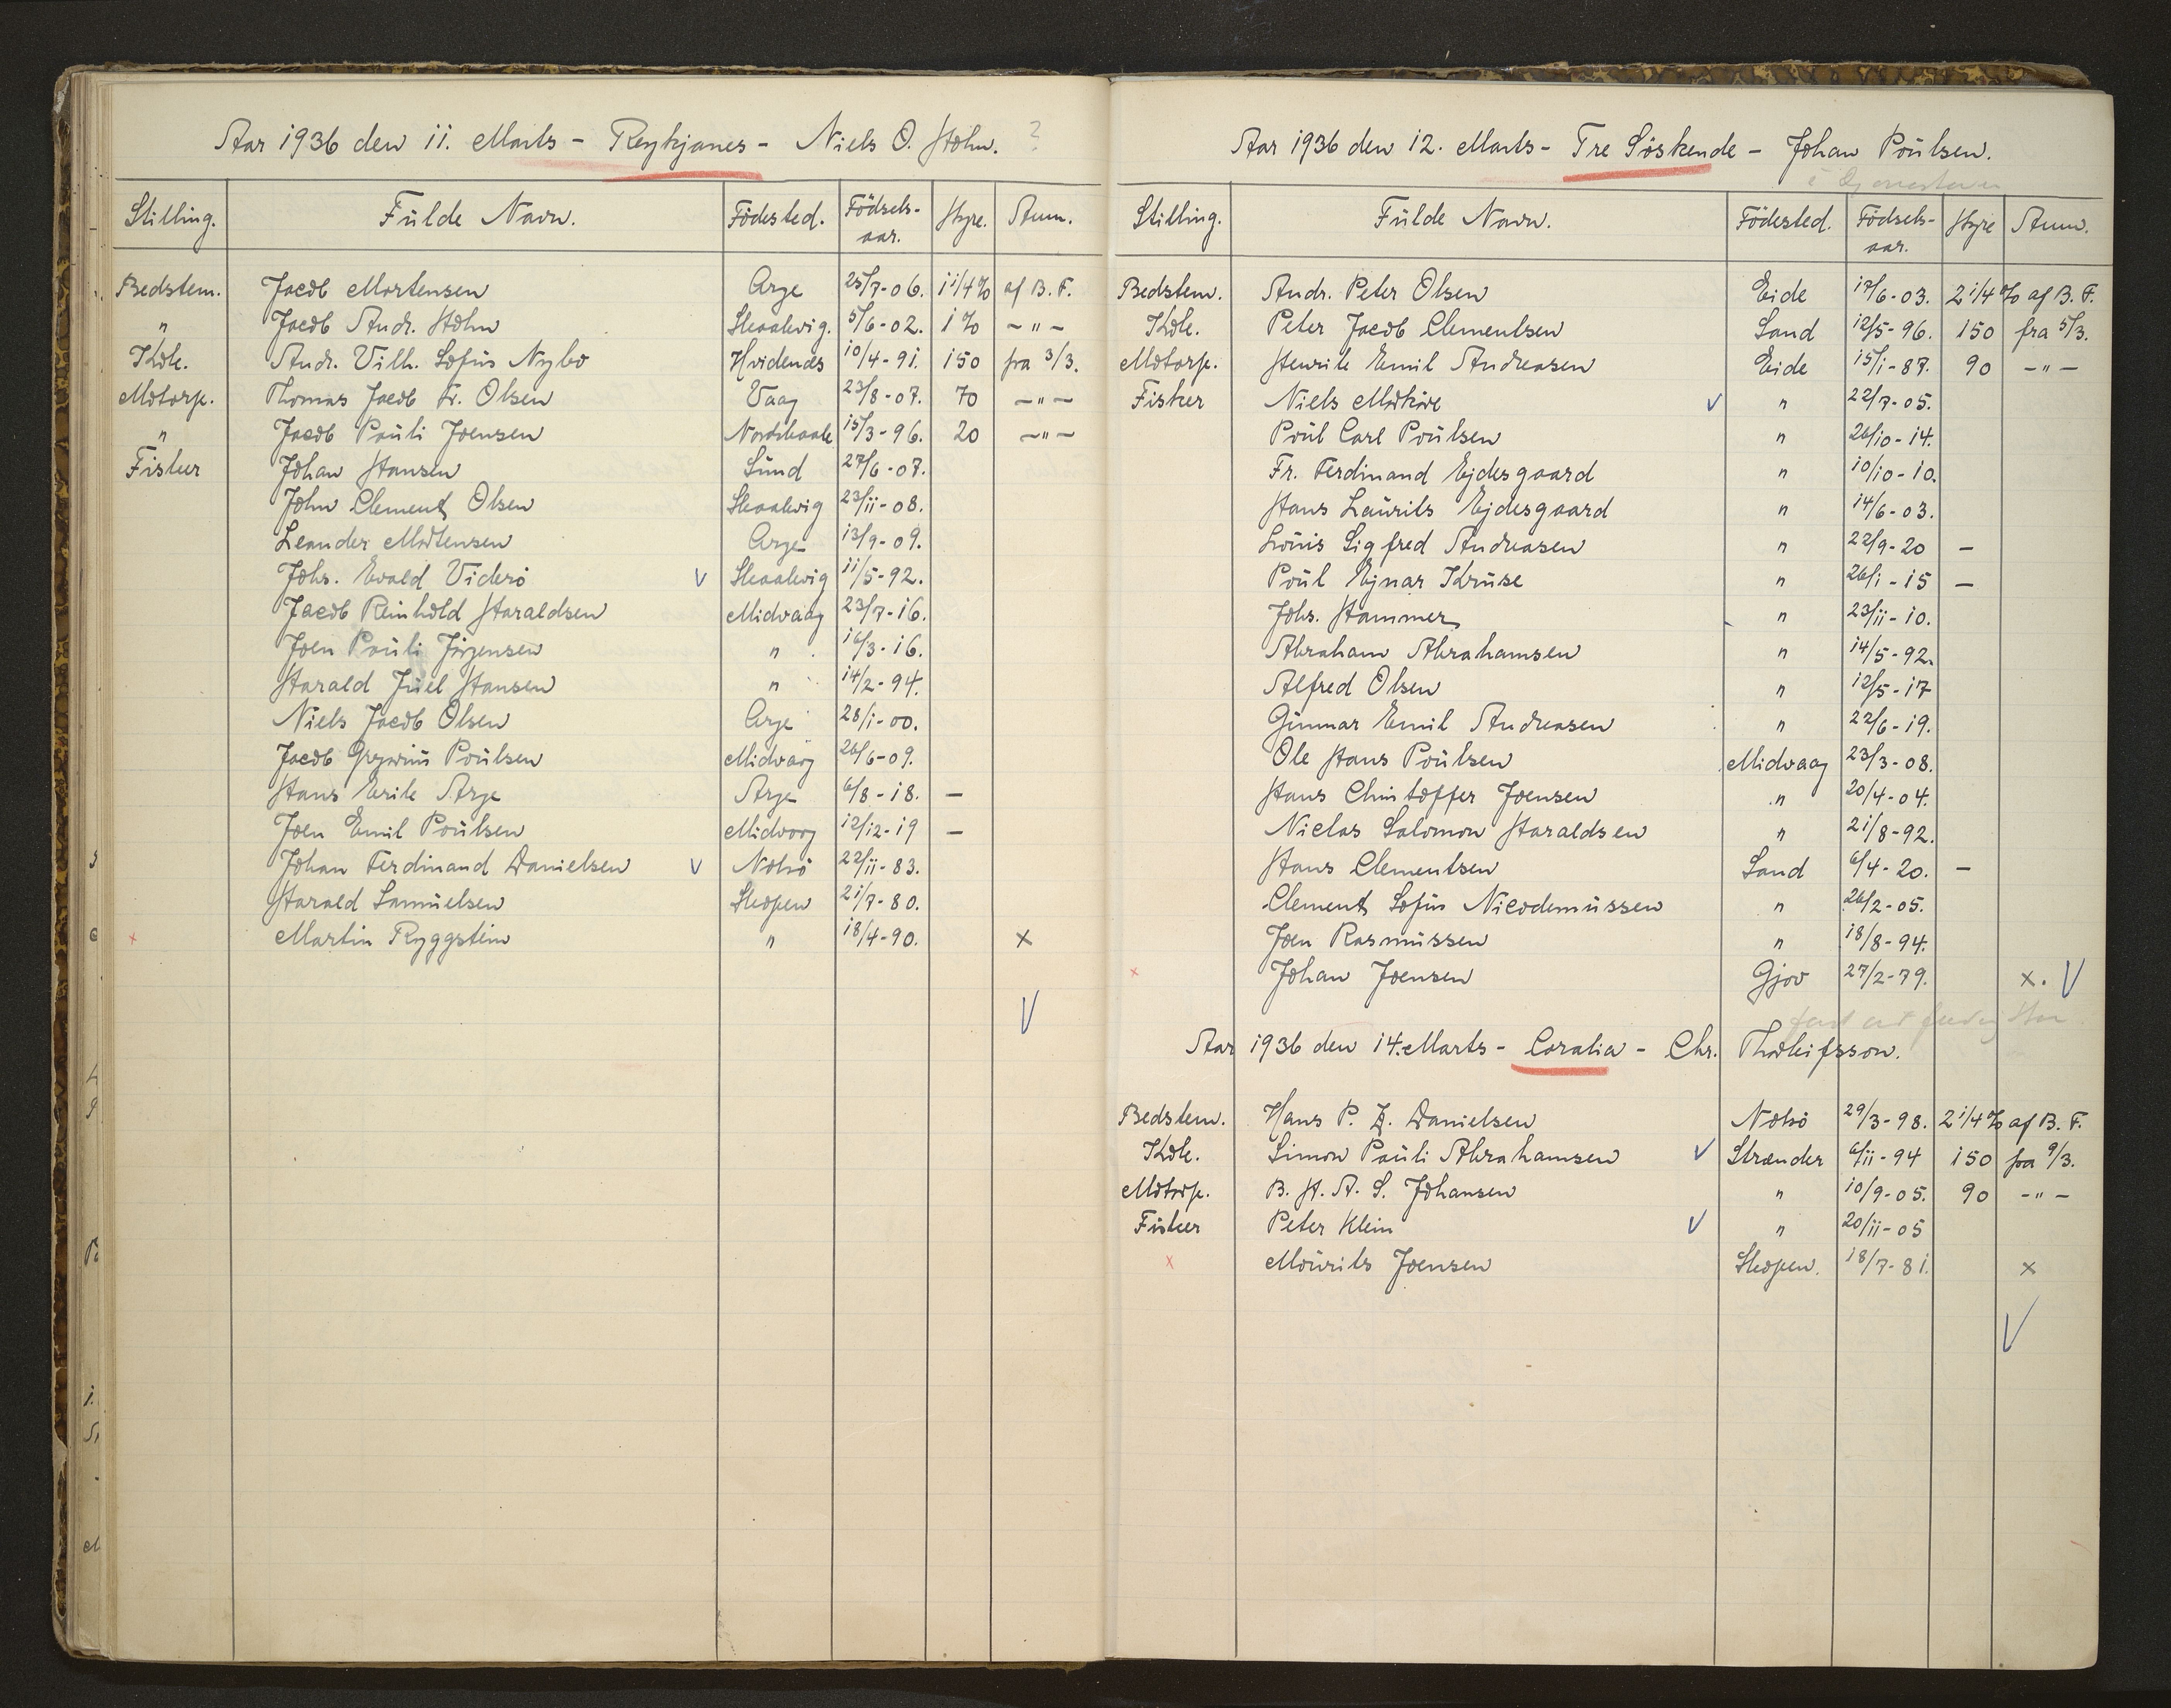 Aar 1936 den 11. Marts - Reykjanes - Niels O. Holm. ?
Stilling. Fulde Navn. Födested. Födsels-aar. Hyre. Anm.
Bedstem. Jacob Mortensen Arge 25/7-06. 1 1/4% af B. F.
" Jacob Andr. Holm Skaalevig. 5/6-02. 1% -"-
Kok. Andr. Vilh. Sofus Nybo Hvidenæs 10/4-91. 150 fra 3/3.
Motorp. Thomas Jacob Fr. Olsen Vaag 23/8-07. 70 -"-
" Jacob Pauli Joensen Nordskaale 15/3-96. 20 -"-
Fisker Johan Hansen Sund 27/6-07.
John Clement Olsen Skaalevig 23/11-08.
Leander Mortensen Arge 13/9-09.
Johs. Evald Viderö V Skaalevig 11/5-92.
Jacob Reinhold Haraldsen Midvaag 23/7-16.
Joen Pauli Jörgensen " 16/3-16.
Harald Juel Hansen " 14/2-94.
Niels Jacob Olsen Arge 28/1-00.
Jacob Gregorius Poulsen Midvaag 26/6-09.
Hans Erik Arge Arge 6/8-18. -
Joen Emil Poulsen Midvaag 12/12-19 -
Johan Ferdinand Danielsen V Nolsö 22/11-83.
Harald Samuelsen Skopen 21/7-80.
x Martin Ryggstein " 18/4-90. x
V
Aar 1936 den 12. Marts - Tre Söskende - Johan Poulsen.
Stilling. Fulde Navn. Födested. Födsels-aar. Hyre Anm.
Bedstem. Andr. Peter Olsen Eide 17/6-03. 2 1/4% af B. F.
Kok. Peter Jacob Clementsen Sand 12/5-96. 150 fra 5/3.
Motorp. Henrik Emil Andreasen Eide 15/1-87. 90 -"-
Fisker Niels Morkøre V " 22/7-05.
Poul Carl Poulsen " 26/10-14.
Fr. Ferdinand Ejdesgaard " 10/10-10.
Hans Laurits Ejdesgaard " 14/6-03.
Louis Sigfred Andreasen " 22/9-20 -
Poul Ejnar Kruse " 26/1-15 -
Johs. Hammer " 23/11-10.
Abraham Abrahamsen " 14/5-92.
Alfred Olsen " 12/5-17
Gunnar Emil Andreasen " 22/6-19.
Ole Hans Poulsen Midvaag 23/3-08.
Hans Christoffer Joensen " 20/4-04.
Niclas Salomon Haraldsen " 21/8-92.
Hans Clementsen Sand 6/4-20. -
Clement Sofus Nicodemussen " 26/2-05.
Joen Rasmussen " 18/8-94.
x Johan Joensen Gjov 27/2-79. x. V
Aar 1936 den 14. Marts - Coralia - Chr. Thorleifsson.
Bedstem. Hans P. Z. Danielsen Nolsö 29/3-98. 2 1/4% af B. F.
Kok. Simon Pauli Abrahamsen V Strænder 6/11-94 150 fra 9/3.
Motorp. B. H. A. S. Johansen " 10/9-05. 90 -"-
Fisker Peter Klein V " 20/11-05
x Mourits Joensen Skopen. 18/7-81. x
V